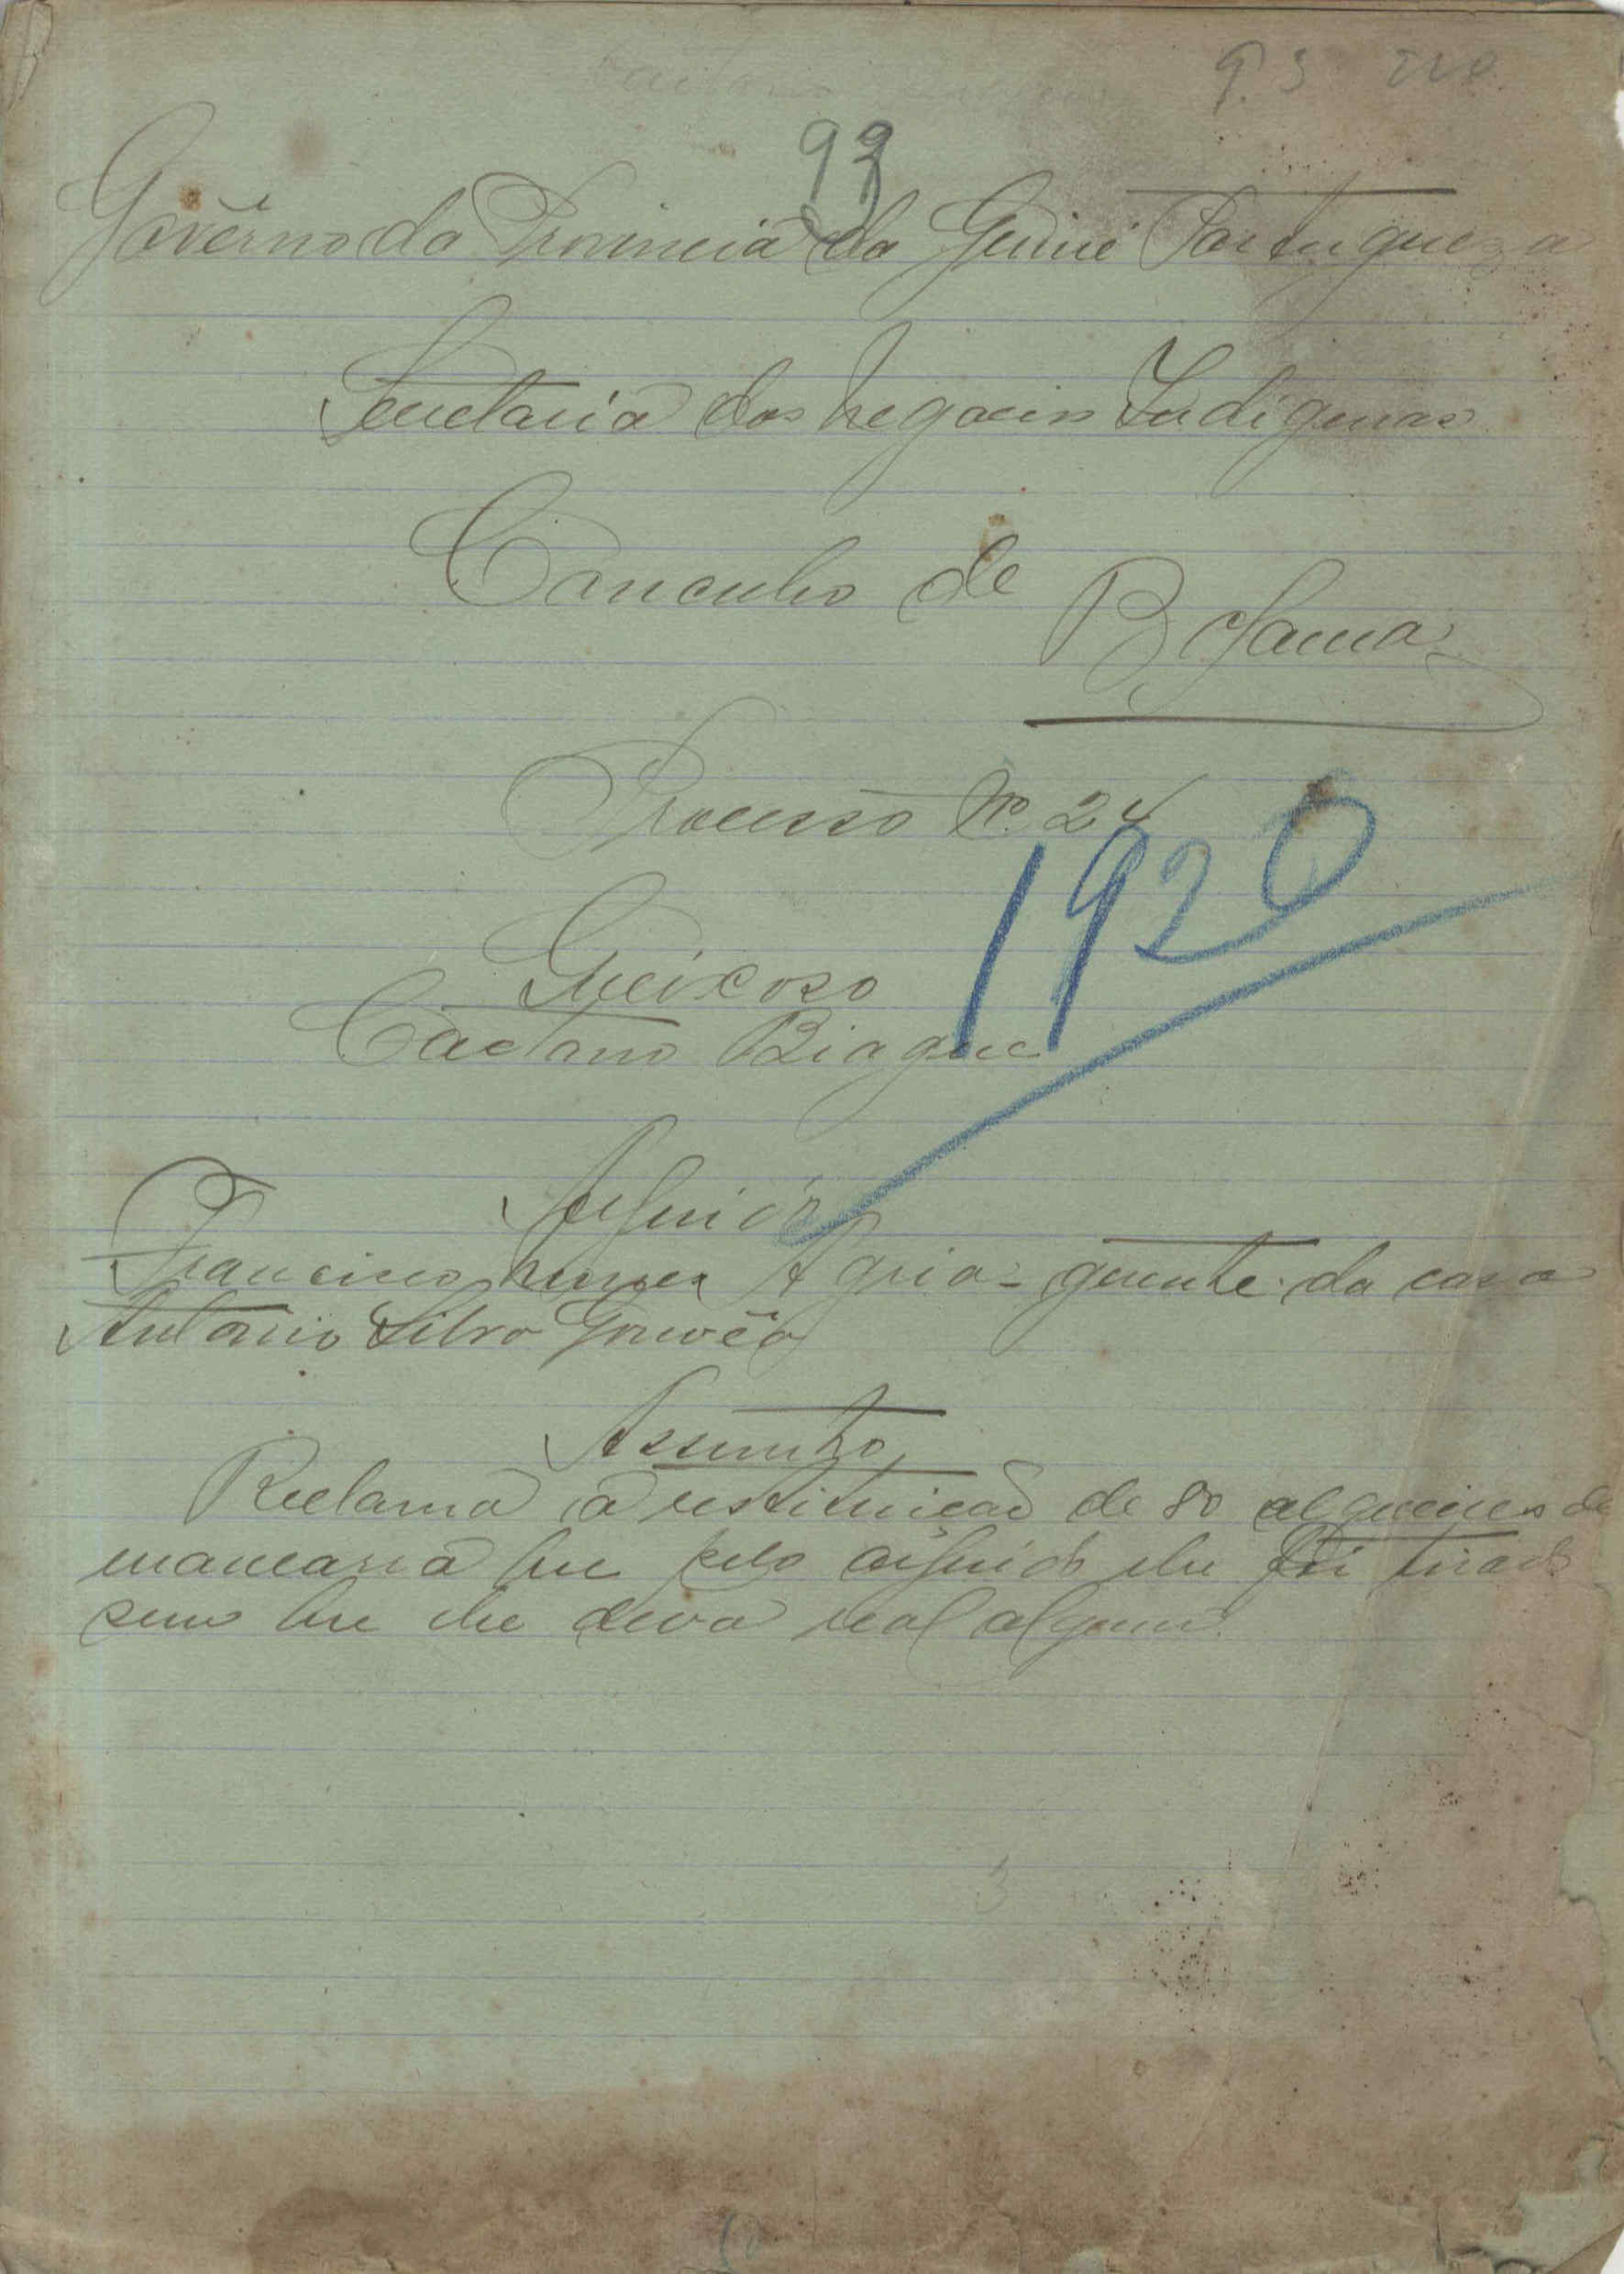 93
Govêrno da Provincia da Guiné Portugueza
Secretaria dos Negocios Indigenas
Concelho de
Bolama
Processo No. 24
1920
Queixoso
Caetano Biague
Arguido
Francisco Nunes Agria - gerente da casa
Antonio Silva Gouvêa
Assunto
Reclama a restituição de 80 alqueires de
mancarra que pelo arguido lhe foi tirado
sem que lhe deva real algum.